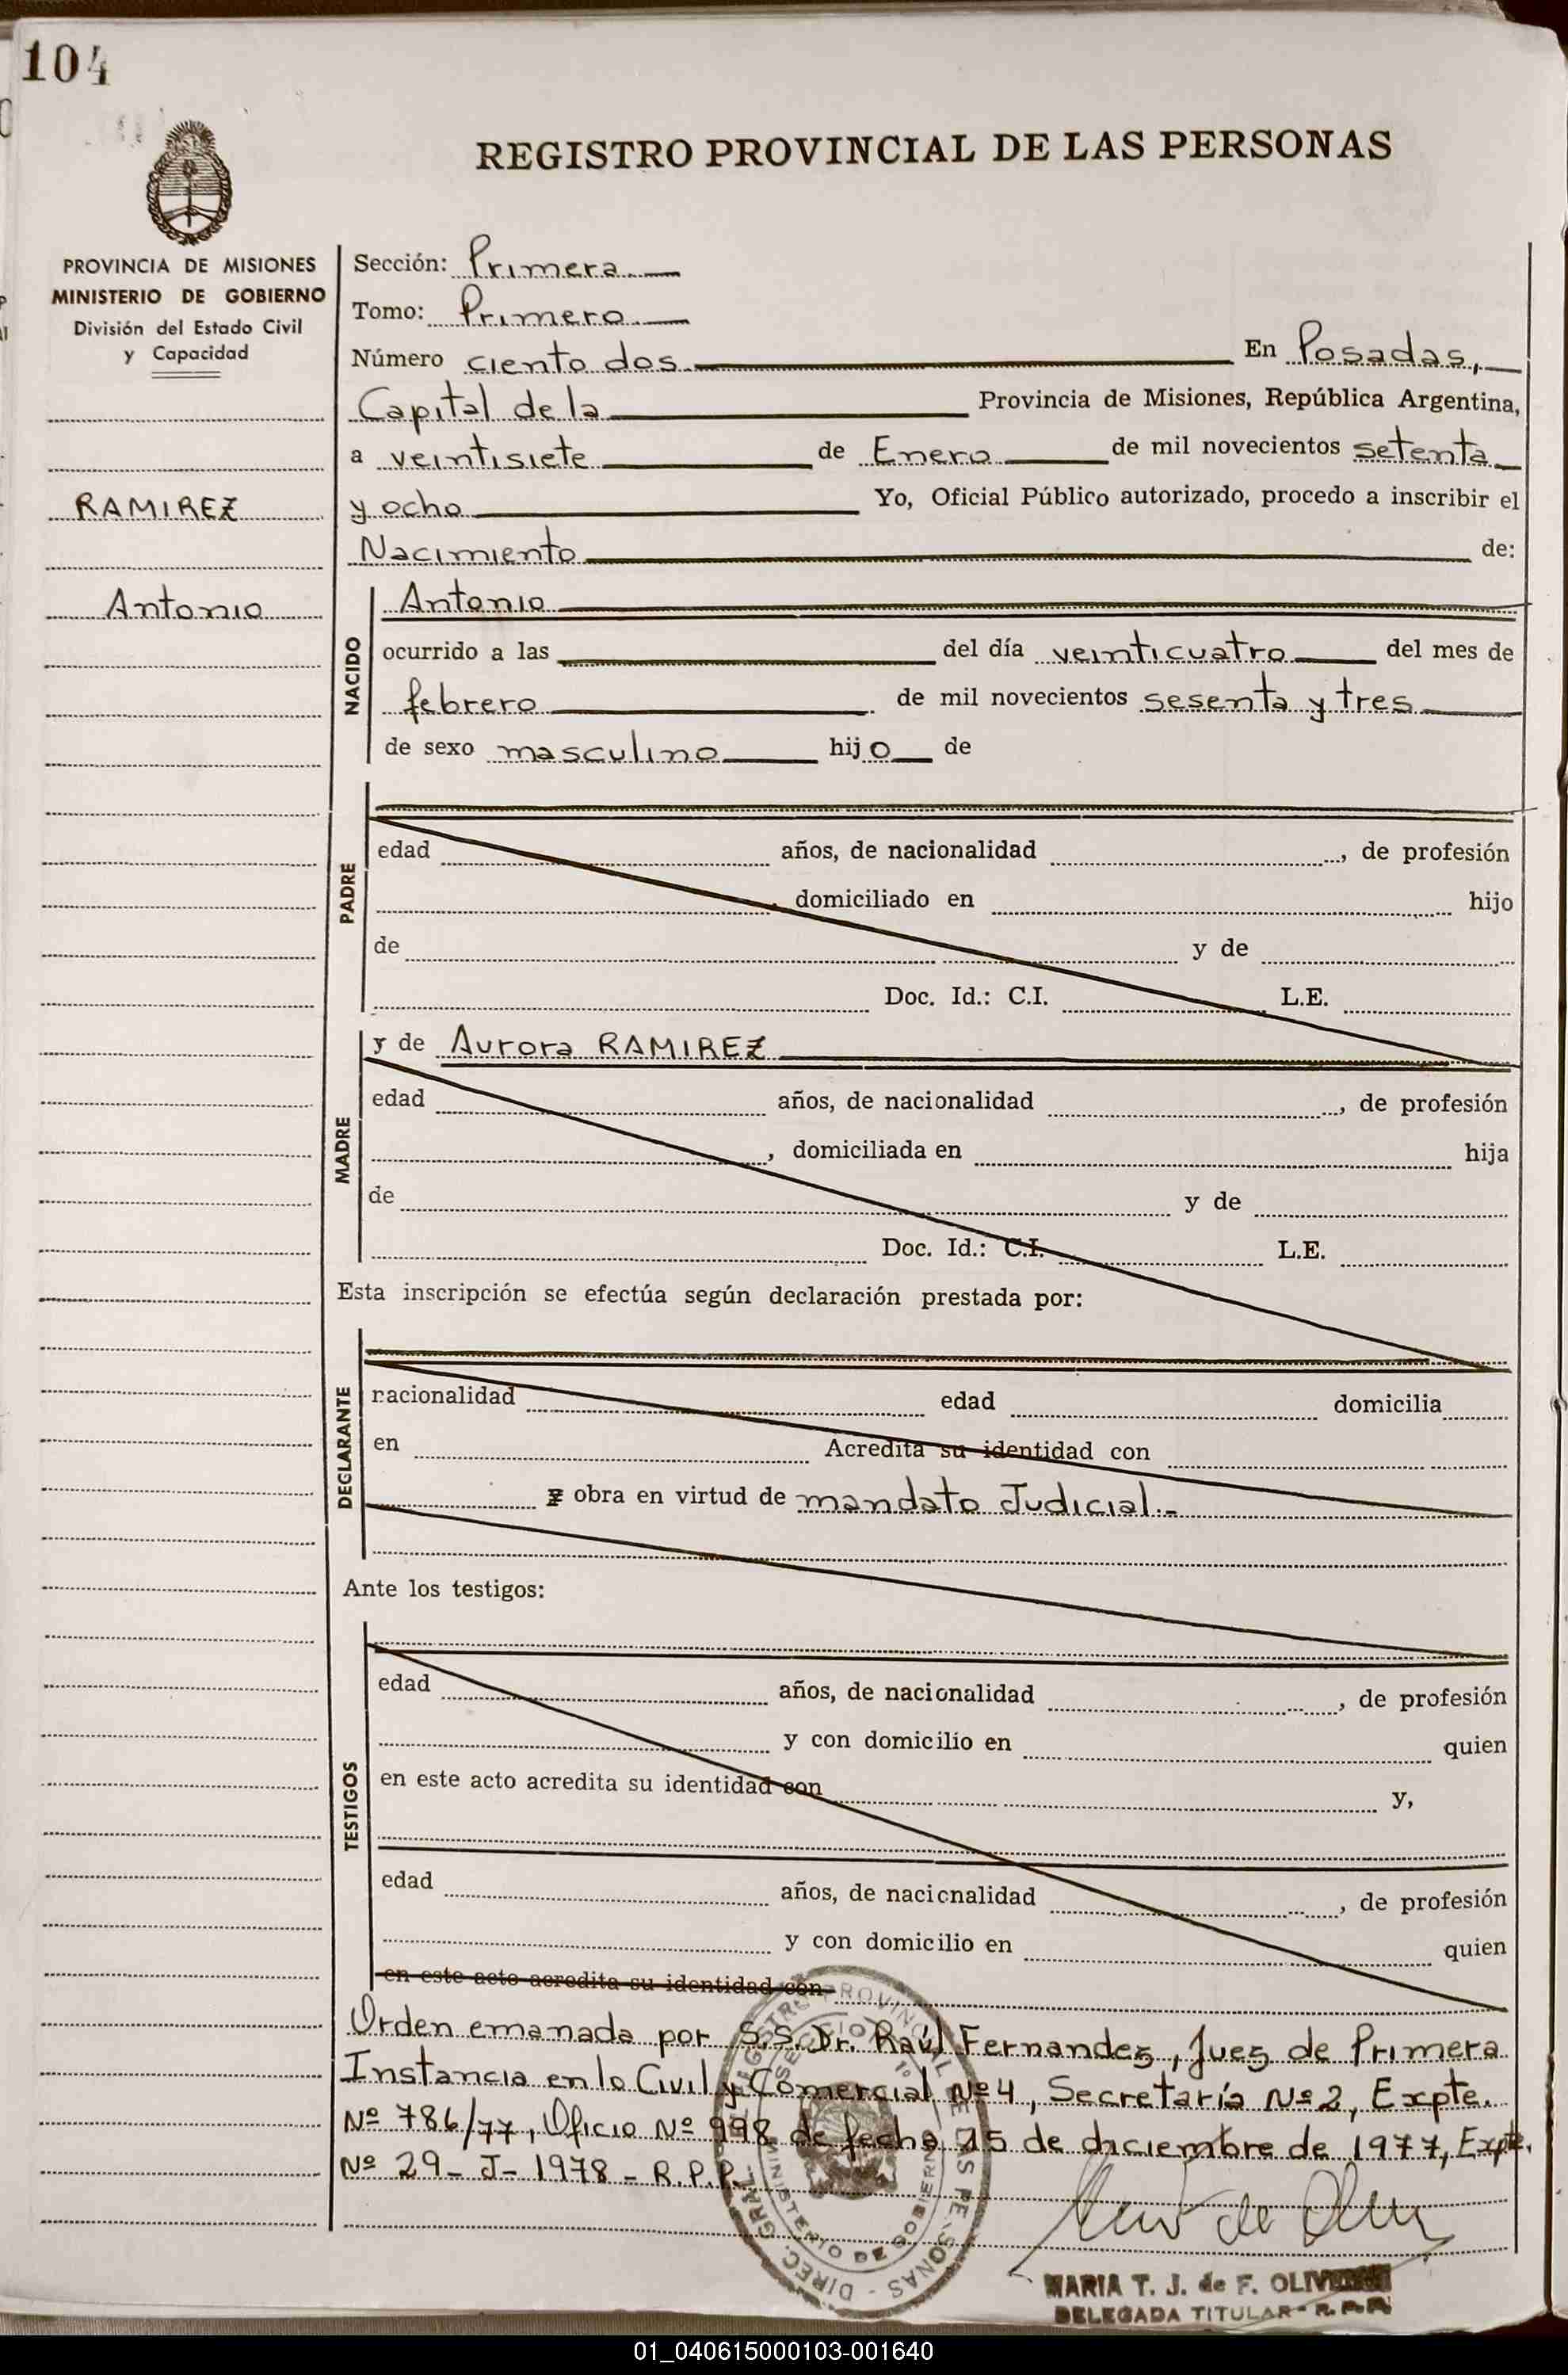 104
REGISTRO PROVINCIAL DE LAS PERSONAS
PROVINCIA DE MISIONES
MINISTERIO DE GOBIERNO
División del Estado Civil
y Capacidad
RAMIREZ
Antonio
Sección: Primera
Tomo: Primero
Número ciento dos En Posadas,
Capital de la Provincia de Misiones, República Argentina,
a veintisiete de Enero de mil novecientos setenta
y ocho Yo, Oficial Público autorizado, procedo a inscribir el
Nacimiento de:
NACIDO
Antonio
ocurrido a las del día veinticuatro del mes de
febrero de mil novecientos sesenta y tres
de sexo masculino hijo de
PADRE
edad años, de nacionalidad , de profesión
domiciliado en hijo
de y de
Doc. Id.: C.I. L.E.
MADRE
y de Aurora RAMIREZ
edad años, de nacionalidad , de profesión
, domiciliada en hija
de y de
Doc. Id.: C.I. L.E.
Esta inscripción se efectúa según declaración prestada por:
DECLARANTE
nacionalidad edad domicilia
en Acredita su identidad con
obra en virtud de mandato Judicial.-
Ante los testigos:
TESTIGOS
edad años, de nacionalidad , de profesión
y con domicilio en quien
en este acto acredita su identidad con y,
edad años, de nacionalidad , de profesión
y con domicilio en quien
en este acto acredita su identidad con
Orden emanada por S.S. Dr. Raúl Fernandez, Juez de Primera
Instancia en lo Civil y Comercial Nº 4, Secretaría Nº 2, Expte.
Nº 786/77, Oficio Nº 998 de fecha 15 de diciembre de 1977, Expte.
Nº 29-J-1978-R.P.P.
DIREC. GRAL. REGISTRO PROVINCIAL DE LAS PERSONAS
SECCION 1º
MINISTERIO DE GOBIERNO
MARIA T. J. de F. OLIV
DELEGADA TITULAR - R.P.P.
01_040615000103-001640